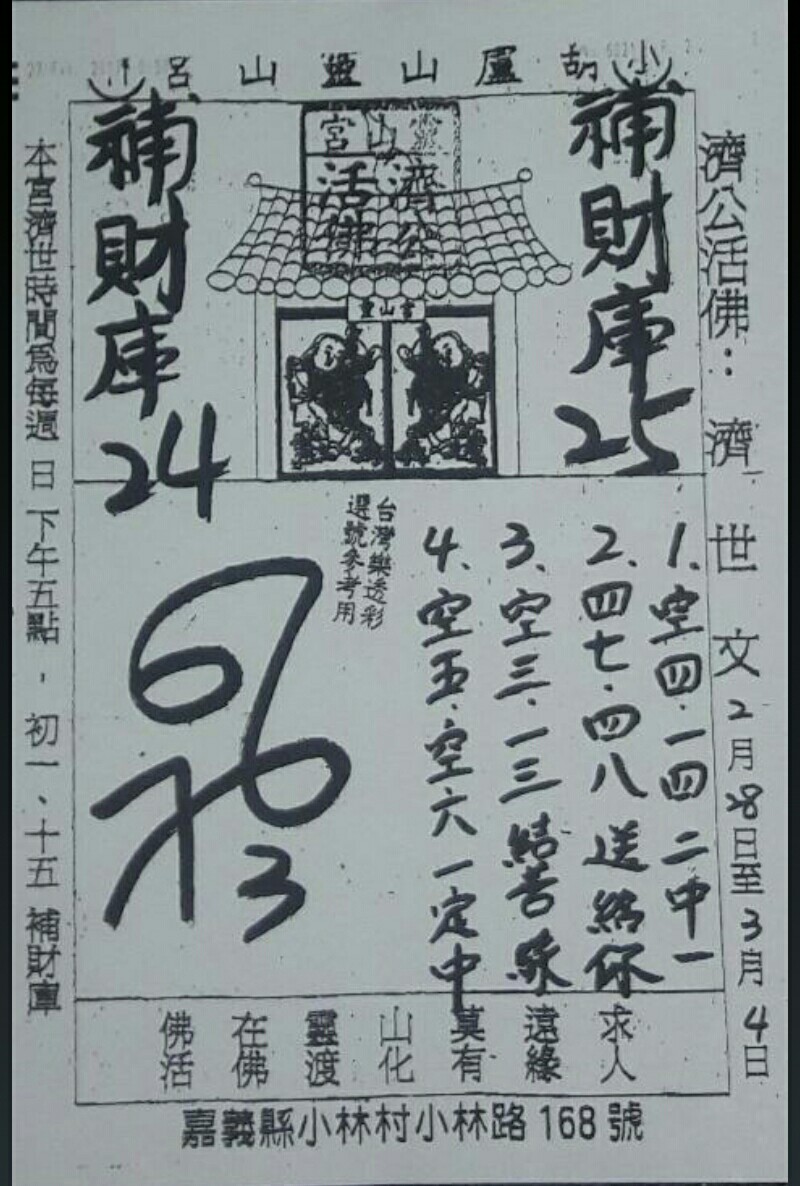 小胡 廬山靈山 呂
濟公活佛：濟世文 2月28日至3月4日
補財庫 25
補財庫 24
靈山宮
濟公
活佛
靈山宮
台灣樂透彩
選號參考用
1、空四．一四 二中一
2、四七．四八 送給你
3、空三．一三 結善緣
4、空五．空六 一定中
3
求人
遠緣
莫有
山化
靈渡
在佛
佛活
本宮濟世時間為每週 日 下午五點，初一、十五 補財庫
嘉義縣小林村小林路168號